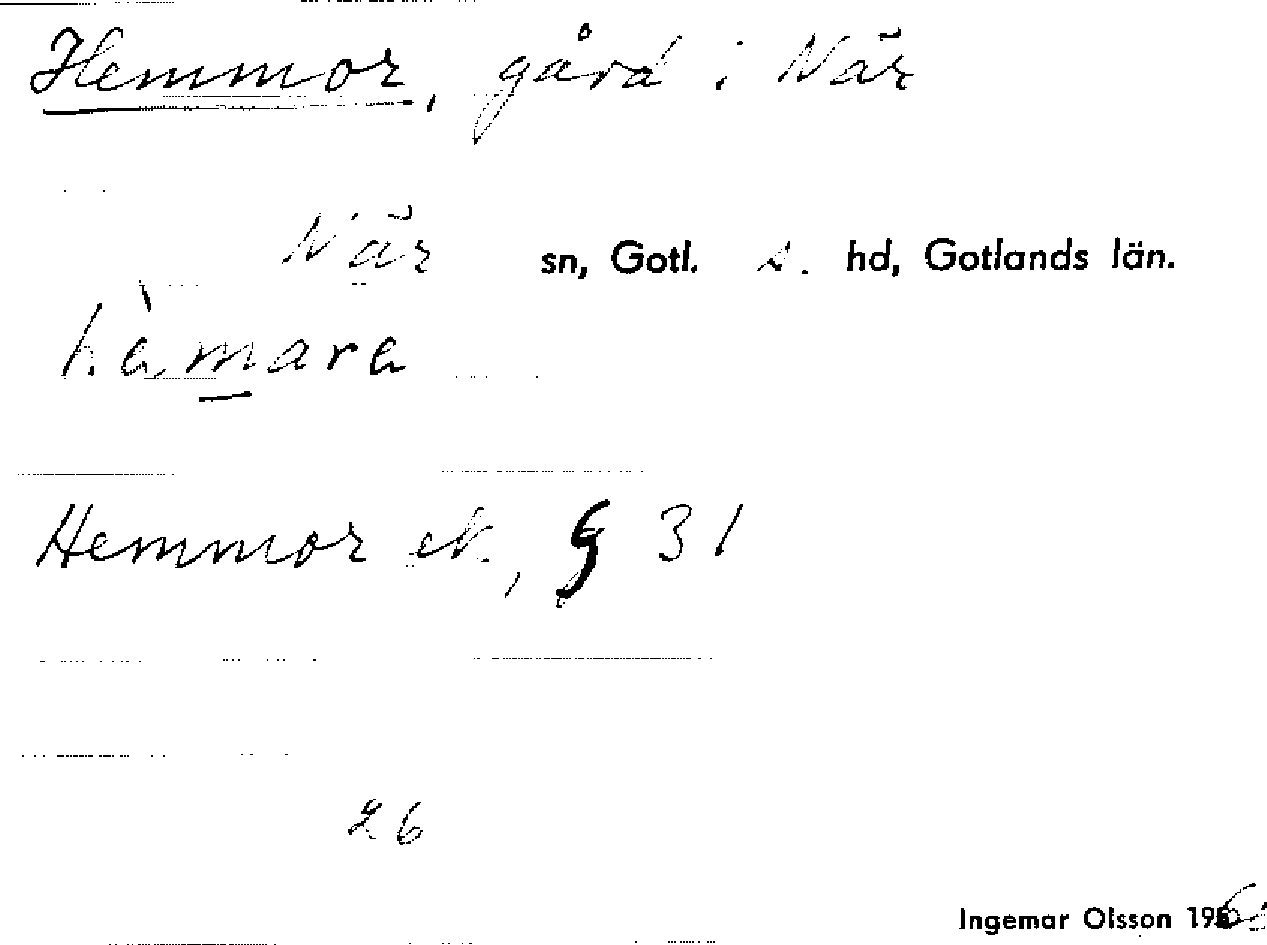 Hemmor, gård i När
När sn, Gotl. s. hd, Gotlands län.
hàmara
Hemmor ek, § 31
26
Ingemar Olsson 196